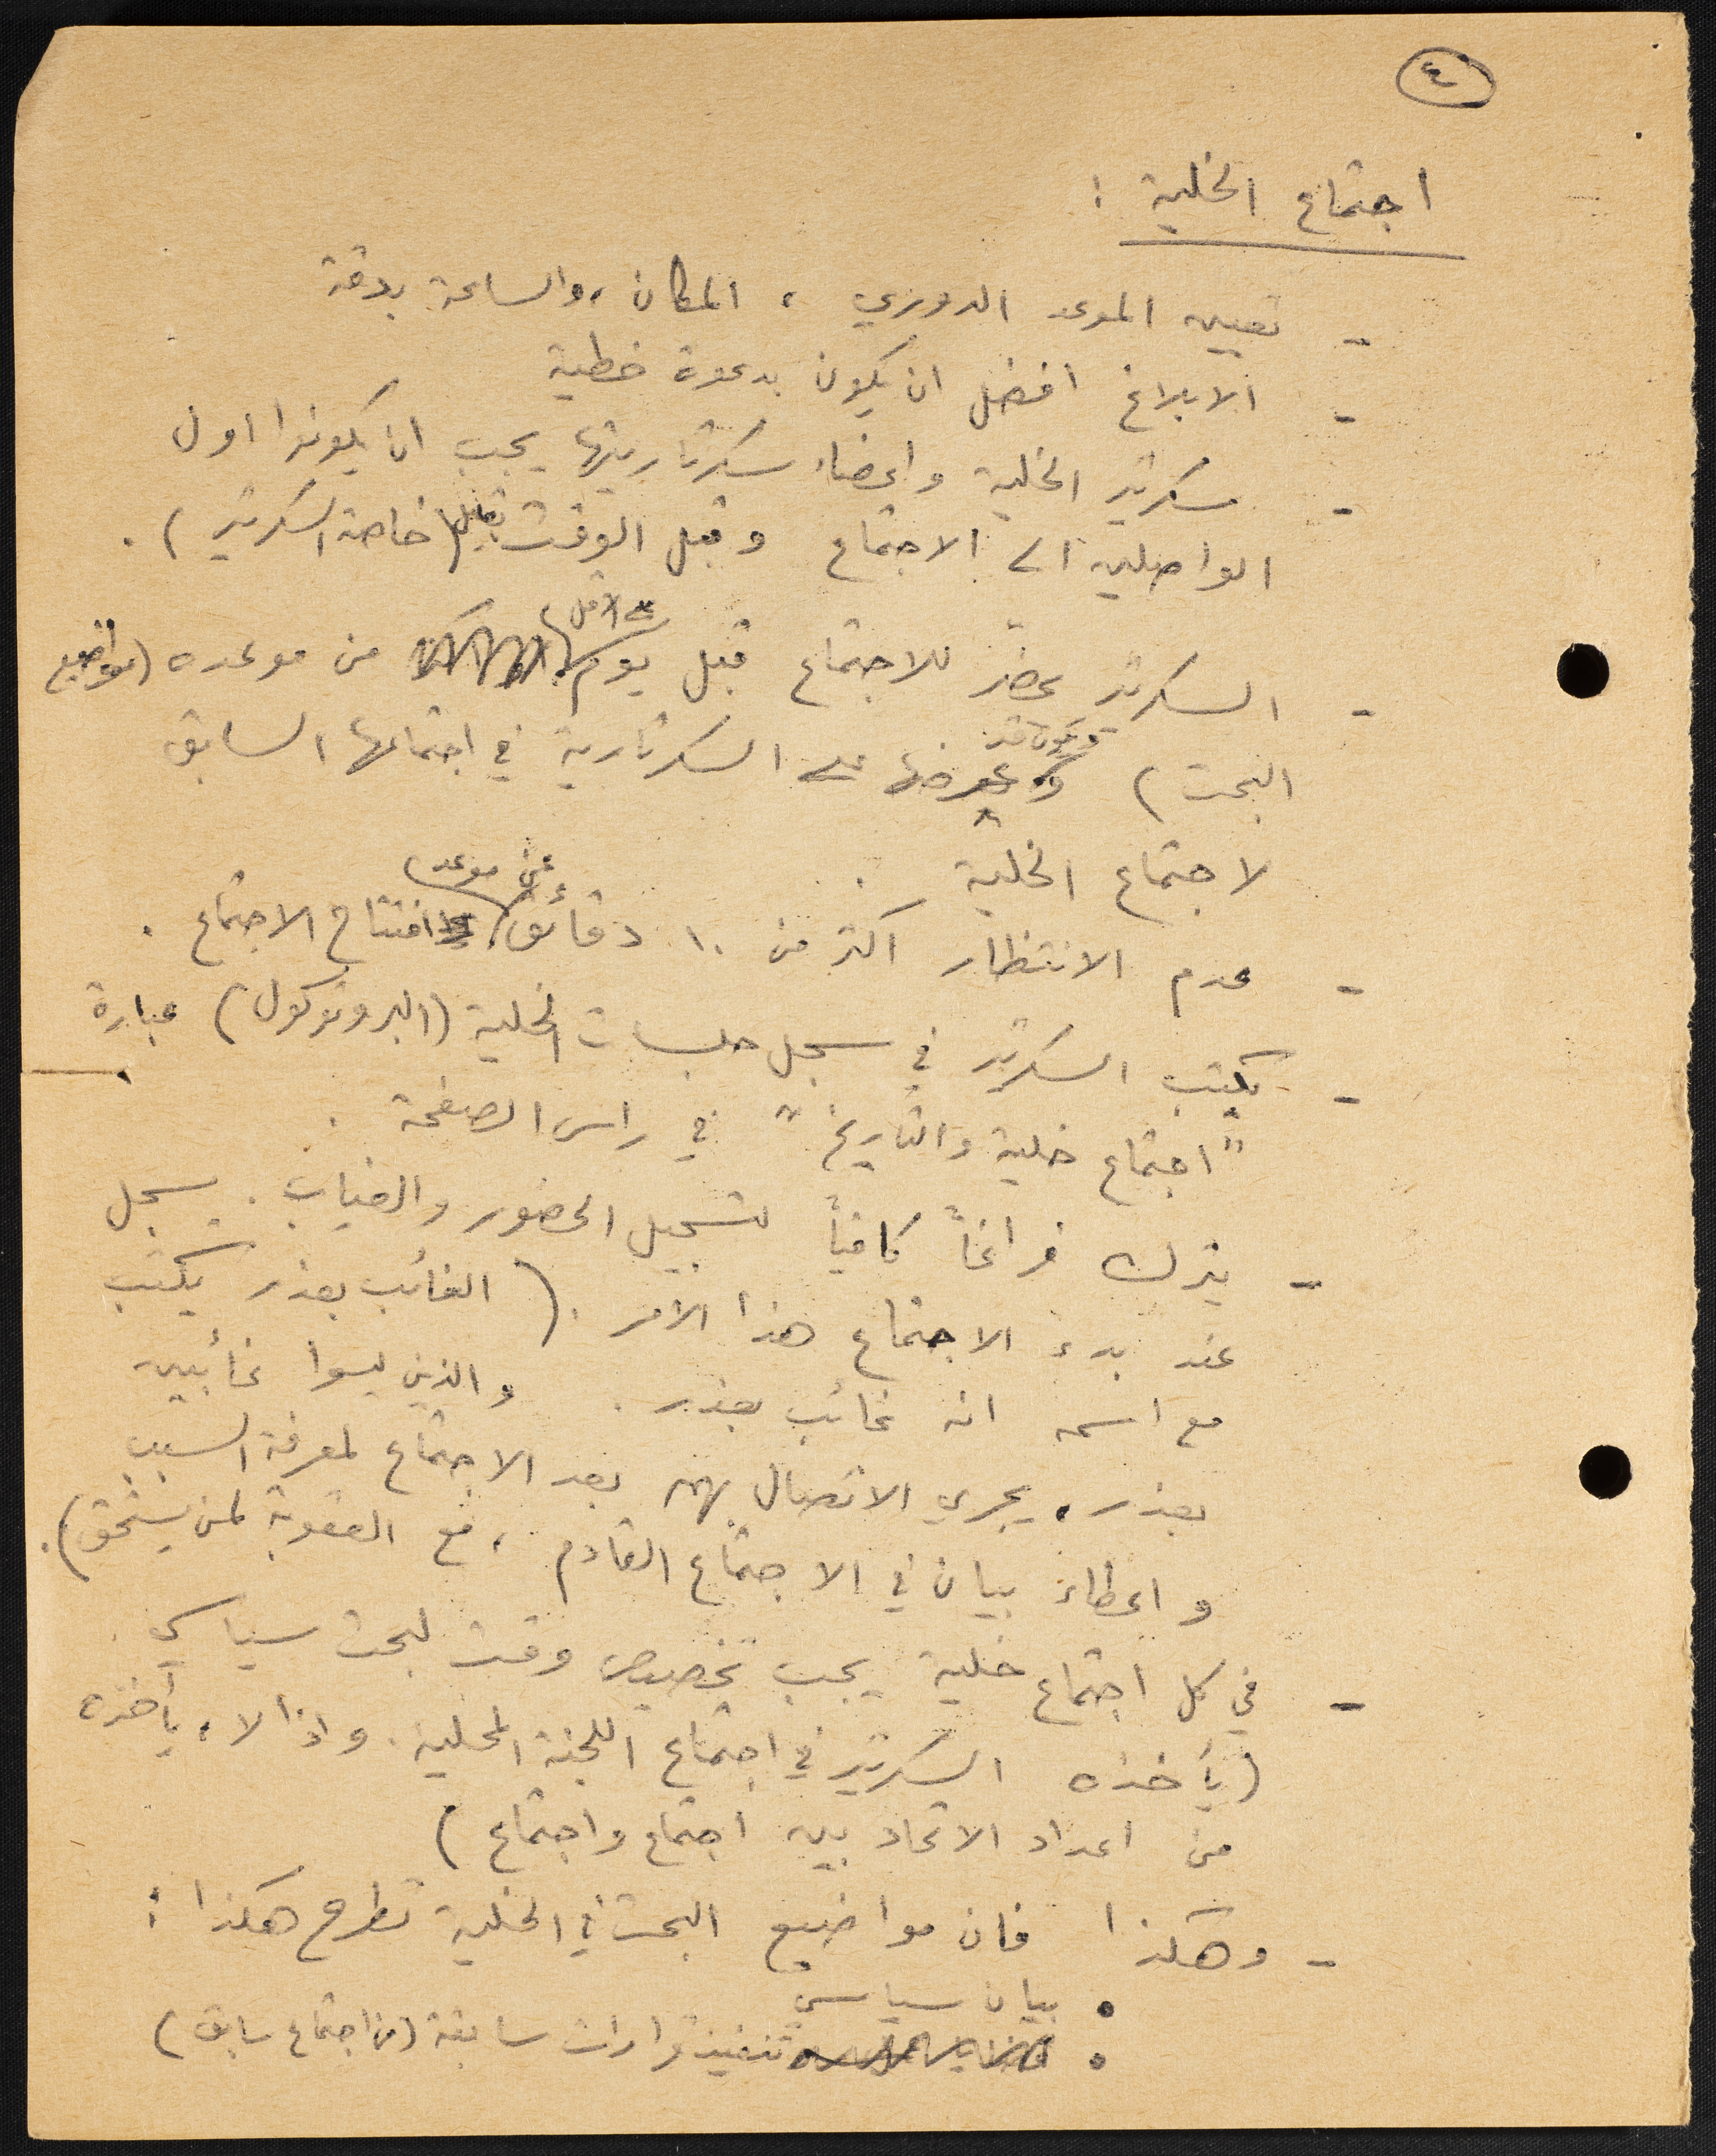 ٤
اجتماع الخلية :
- تعيين الموعد الدوري ، المكان ، والساعة بدقة
- الابلاغ افضل ان يكون بدعوة خطية
- سكرتير الخلية واعضاء سكرتاريتها يجب ان يكونوا اول
الواصلين الى الاجتماع وقبل الوقت بقليل (خاصة السكرتير) .
- السكرتير يحضر للاجتماع قبل يوم على الاقل من موعده (مواضيع
البحث) ويكون قد عرضها على السكرتارية في اجتماعها السابق
لاجتماع الخلية .
- عدم الانتظار اكثر من ١٠ دقائق عن موعد افتتاح الاجتماع .
- يكتب السكرتير في سجل جلسات الخلية (البروتوكول) عبارة
"اجتماع خلية والتاريخ" في راس الصفحة .
- يترك فراغاً كافياً لتسجيل الحضور والغياب . يسجل
عند بدء الاجتماع هذا الامر . (الغائب بعذر يكتب
مع اسمه انه غائب بعذر . والذين ليسوا غائبين
بعذر ، يجري الاتصال بهم بعد الاجتماع لمعرفة السبب
واعطاء بيان في الاجتماع القادم ، مع العقوبة لمن يستحق) .
- في كل اجتماع خلية يجب تخصيص وقت لبحث سياسي .
(يأخذه السكرتير في اجتماع اللجنة المحلية . واذا لا ، يأخذه
من اعداد الاتحاد بين اجتماع واجتماع )
- وهكذا فان مواضيع البحث في الخلية تطرح هكذا :
• بيان سياسي
• تنفيذ قرارات سابقة (من اجتماع سابق)